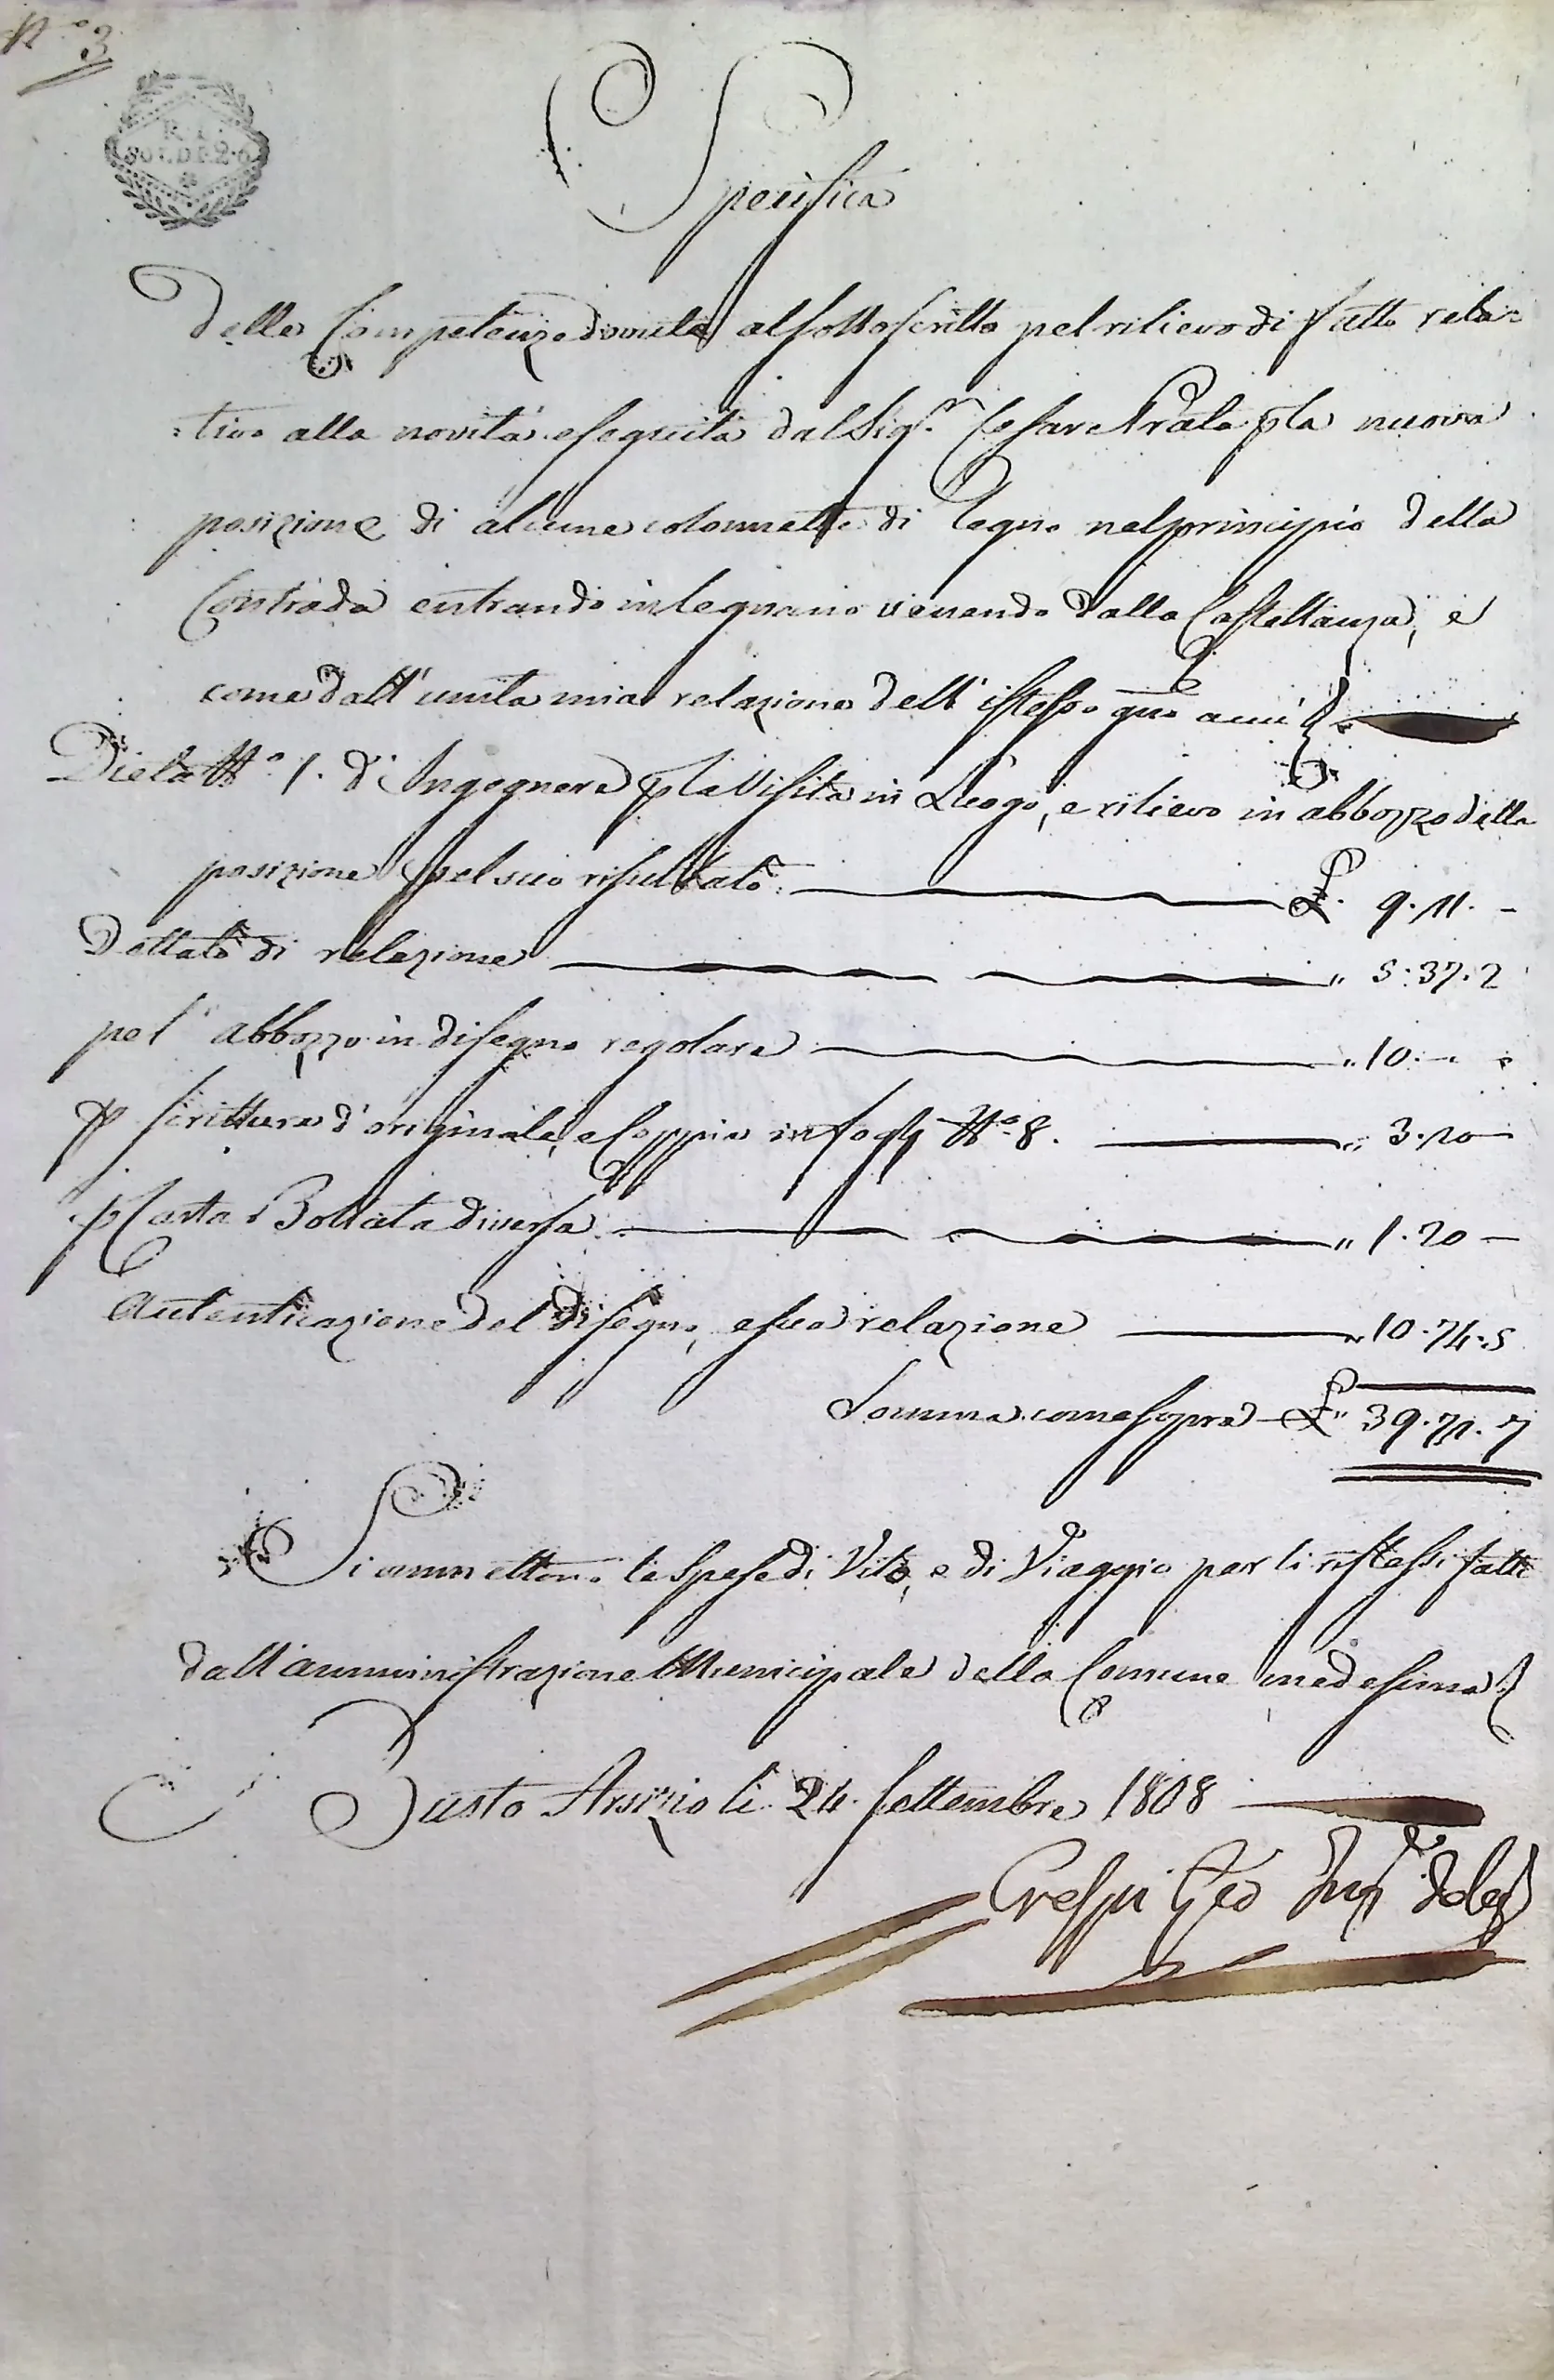 N.º 3
R. I.
SOLDI 2.6
Specifica
Delle Competenze dovute al sottoscritto pel rilievo di fatto rela-
-tivo alla novità eseguita dal Sig.r Cesare Prata p la nuova
posizione di alcune colonnette di legno nel principio della
Contrada entrando in Legnano venendo dalla Castellanza, e
come dall'unita mia relazione dell'istesso
Dieta N.º 1. d'Ingegnere p la Visita in Luogo, e rilievo in abbozzo della
posizione pel suo risultato. £. 9.11. -
Dettato di relazione " 5.37.2
pel abbozzo in disegno regolare " 10. -
p scrittura d'originale, e Coppia in fogli N.º 8. " 3.20 -
p Carta Bollata diversa " 1.20 -
Autenticazione del disegno, e sua relazione " 10.74.5
Somma come sopra £" 39.71.7
Si ommettono le spese di Vito, e di Viaggio per li istessi fatte
dall'amministrazione Municipale della Comune medesima
Busto Arsizio li 24. Settembre 1808
Crespi Ing.e